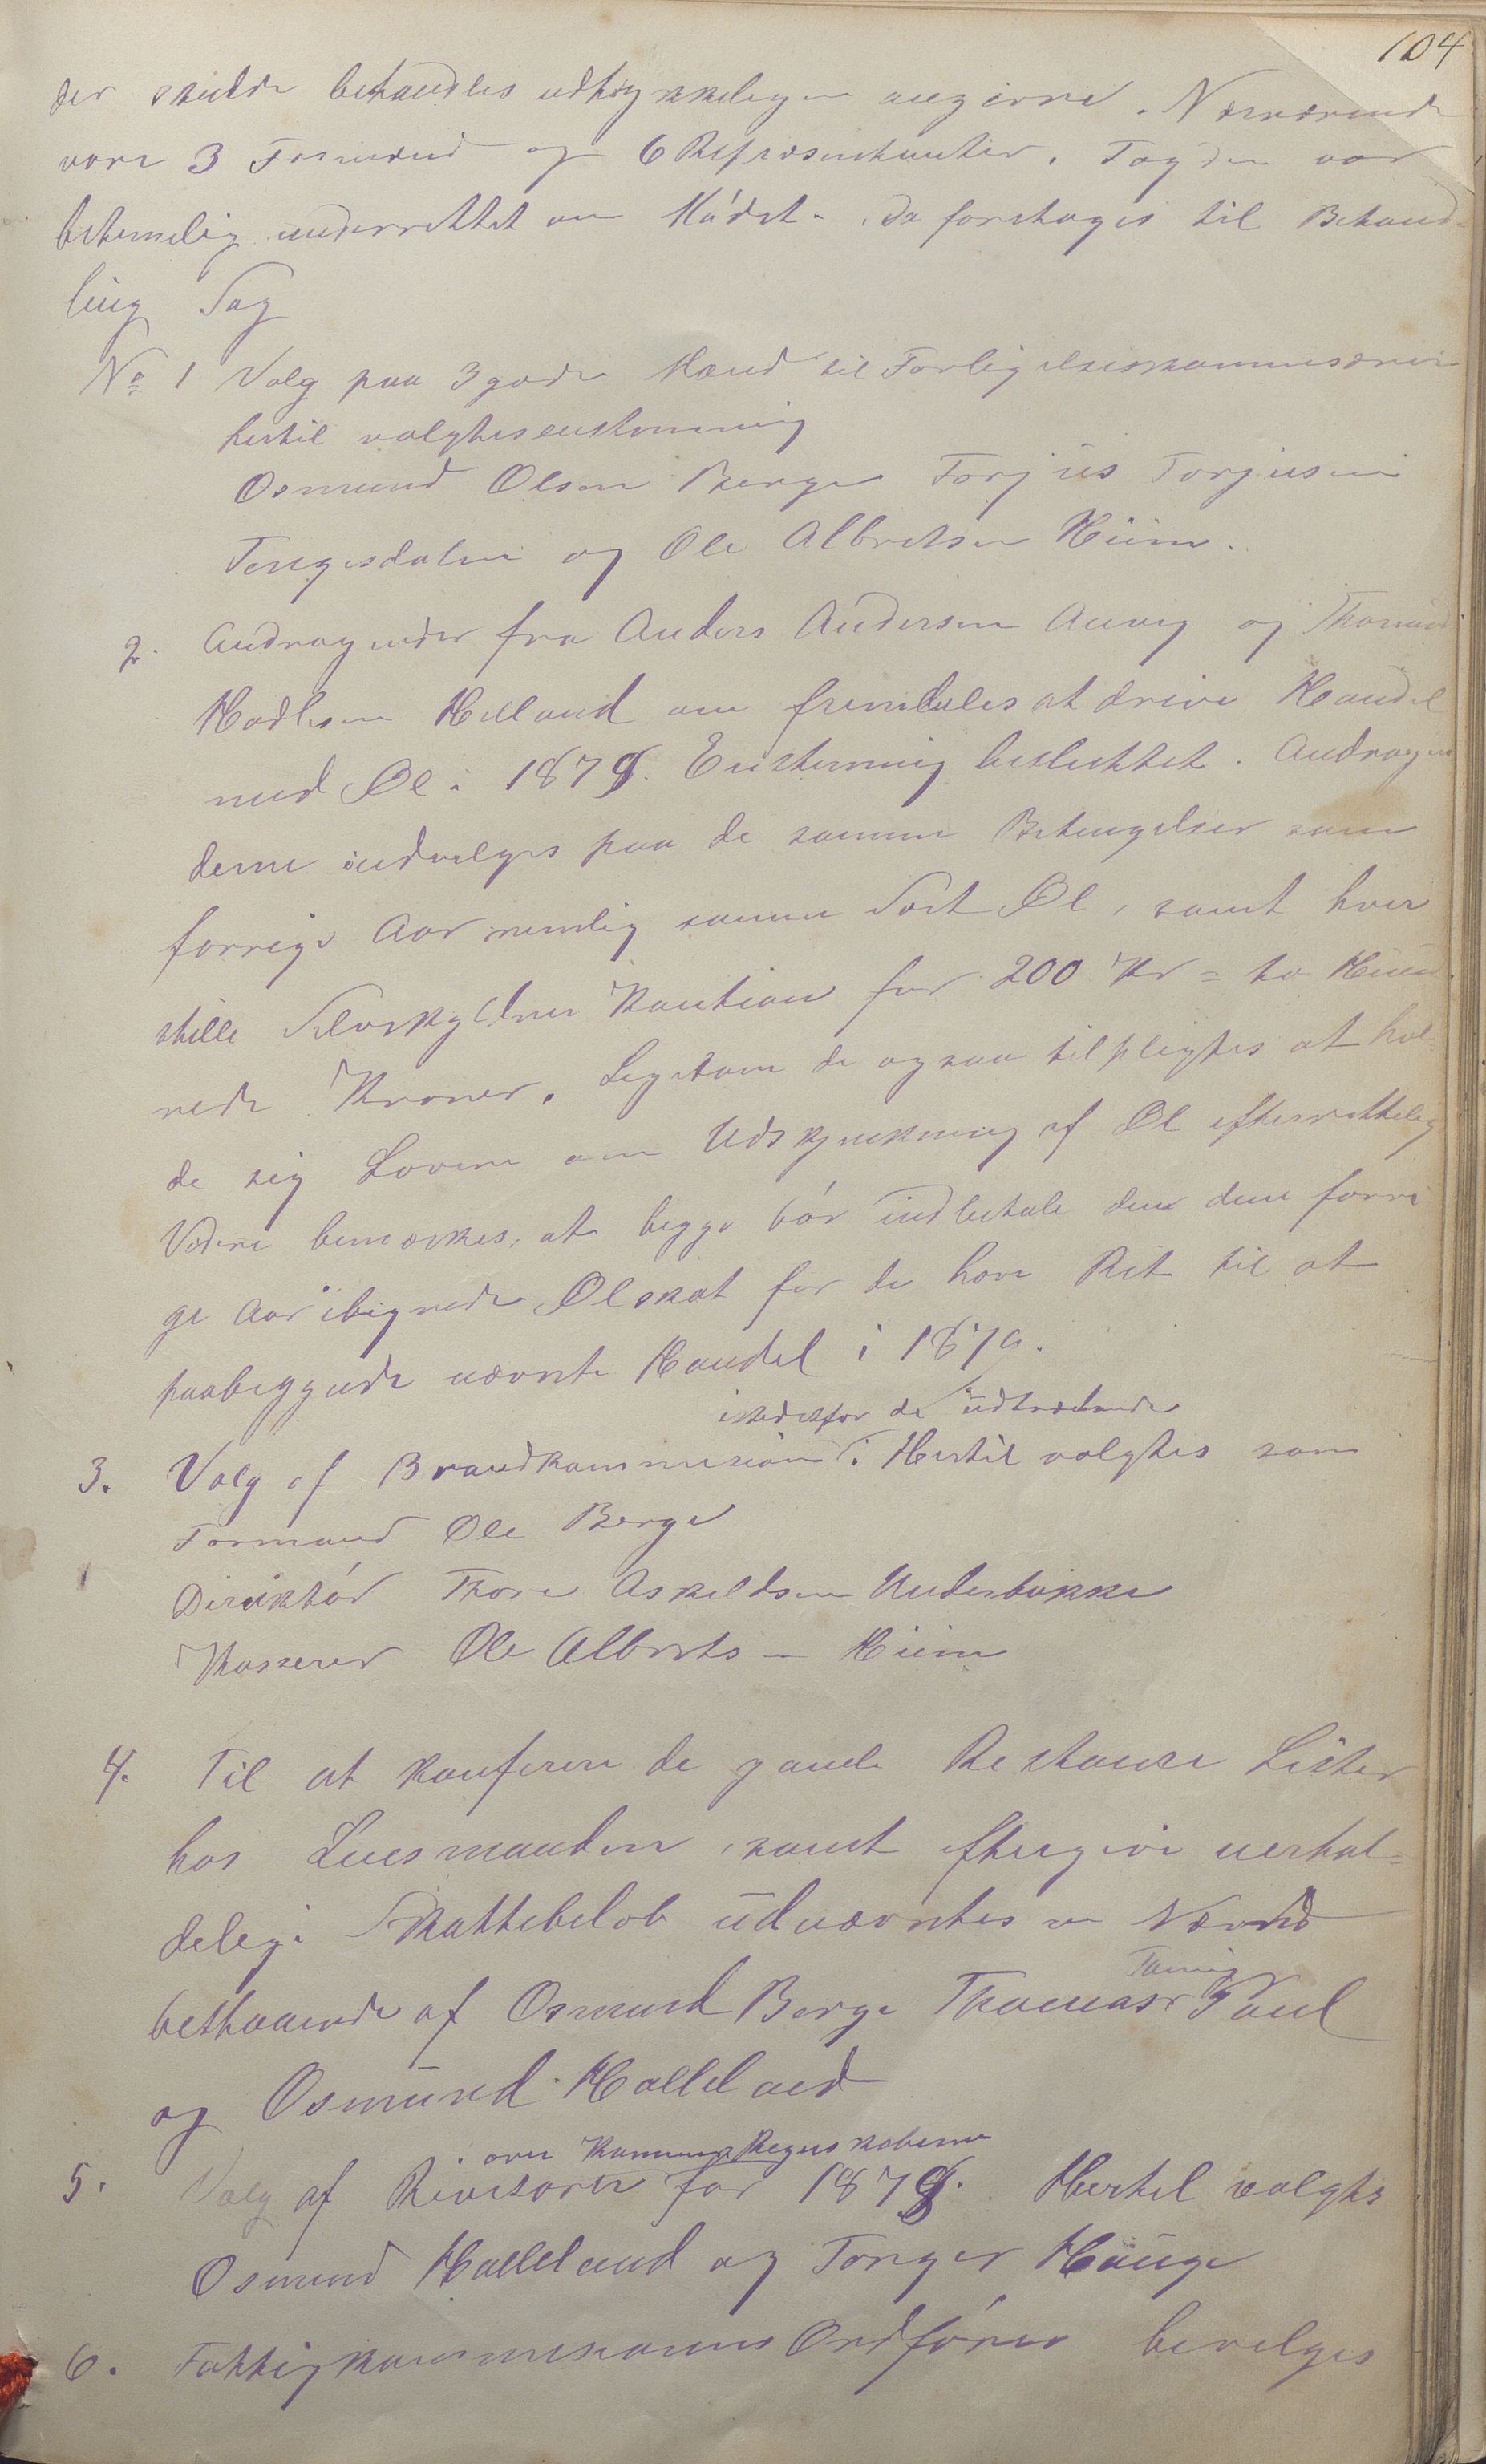 104
der skulde behandles udtrykkelegen angivne. Nærværende
vare 3 Formænd og 6 Repræsentanter. Fogden var
betimelig underrettet om Mødet. da foretoges til Behand-
ling Sag
No 1 Valg paa 3 gode Mænd til Forligelseskommissærer
hertil valgtes enstemmig
Osmund Olsen Berge Torjus Torjusen
Tengesdalen og Ole Albretsen Hiim.
2. Andragender fra Anders Andersen Anvig og
Hadlesen Helland om fremdeles at drive Handel
med Øl i 1879. Enstemmig besluttet. Andragen
derne indvilges paa de samme Betingelser som
forrige Aar nemlig samme Sort Øl, samt hver
stille Selvskyldner Kaution for 200 Kr = to Hund
rede Kroner. Ligesom de ogsaa tilpligtes at hol-
de sig Lovene om Udskjænkning af Øl efterrettelig
Videre bemærkes, at begge bør indbetale den dem forri
ge Aar ilignede Ølskat før de have Ret til at
paabegynde nævnte Handel i 1879.
istedetfor de udtrædende
3. Valg af Brandkommission. Hertil valgtes som
Formand Ole Berge
Direktør Thore Askeldsen Underbakke
Kasserer Ole Albrets-n Hiim
4. Til at konferere de gamle Restance Lister
hos Lensmanden, samt eftergive uerhol-
delige Skattebeløb udnævntes en Nævnd
bestaaende af Osmund Berge Thomas Paul
og Osmund Halleland
over Kommune Regnskaberne
5. Valg af Revisorer for 1878. Hertil valgtes
Osmund Halleland og Torger Hauge
6. Fattigkommissionens Ordfører bevilges